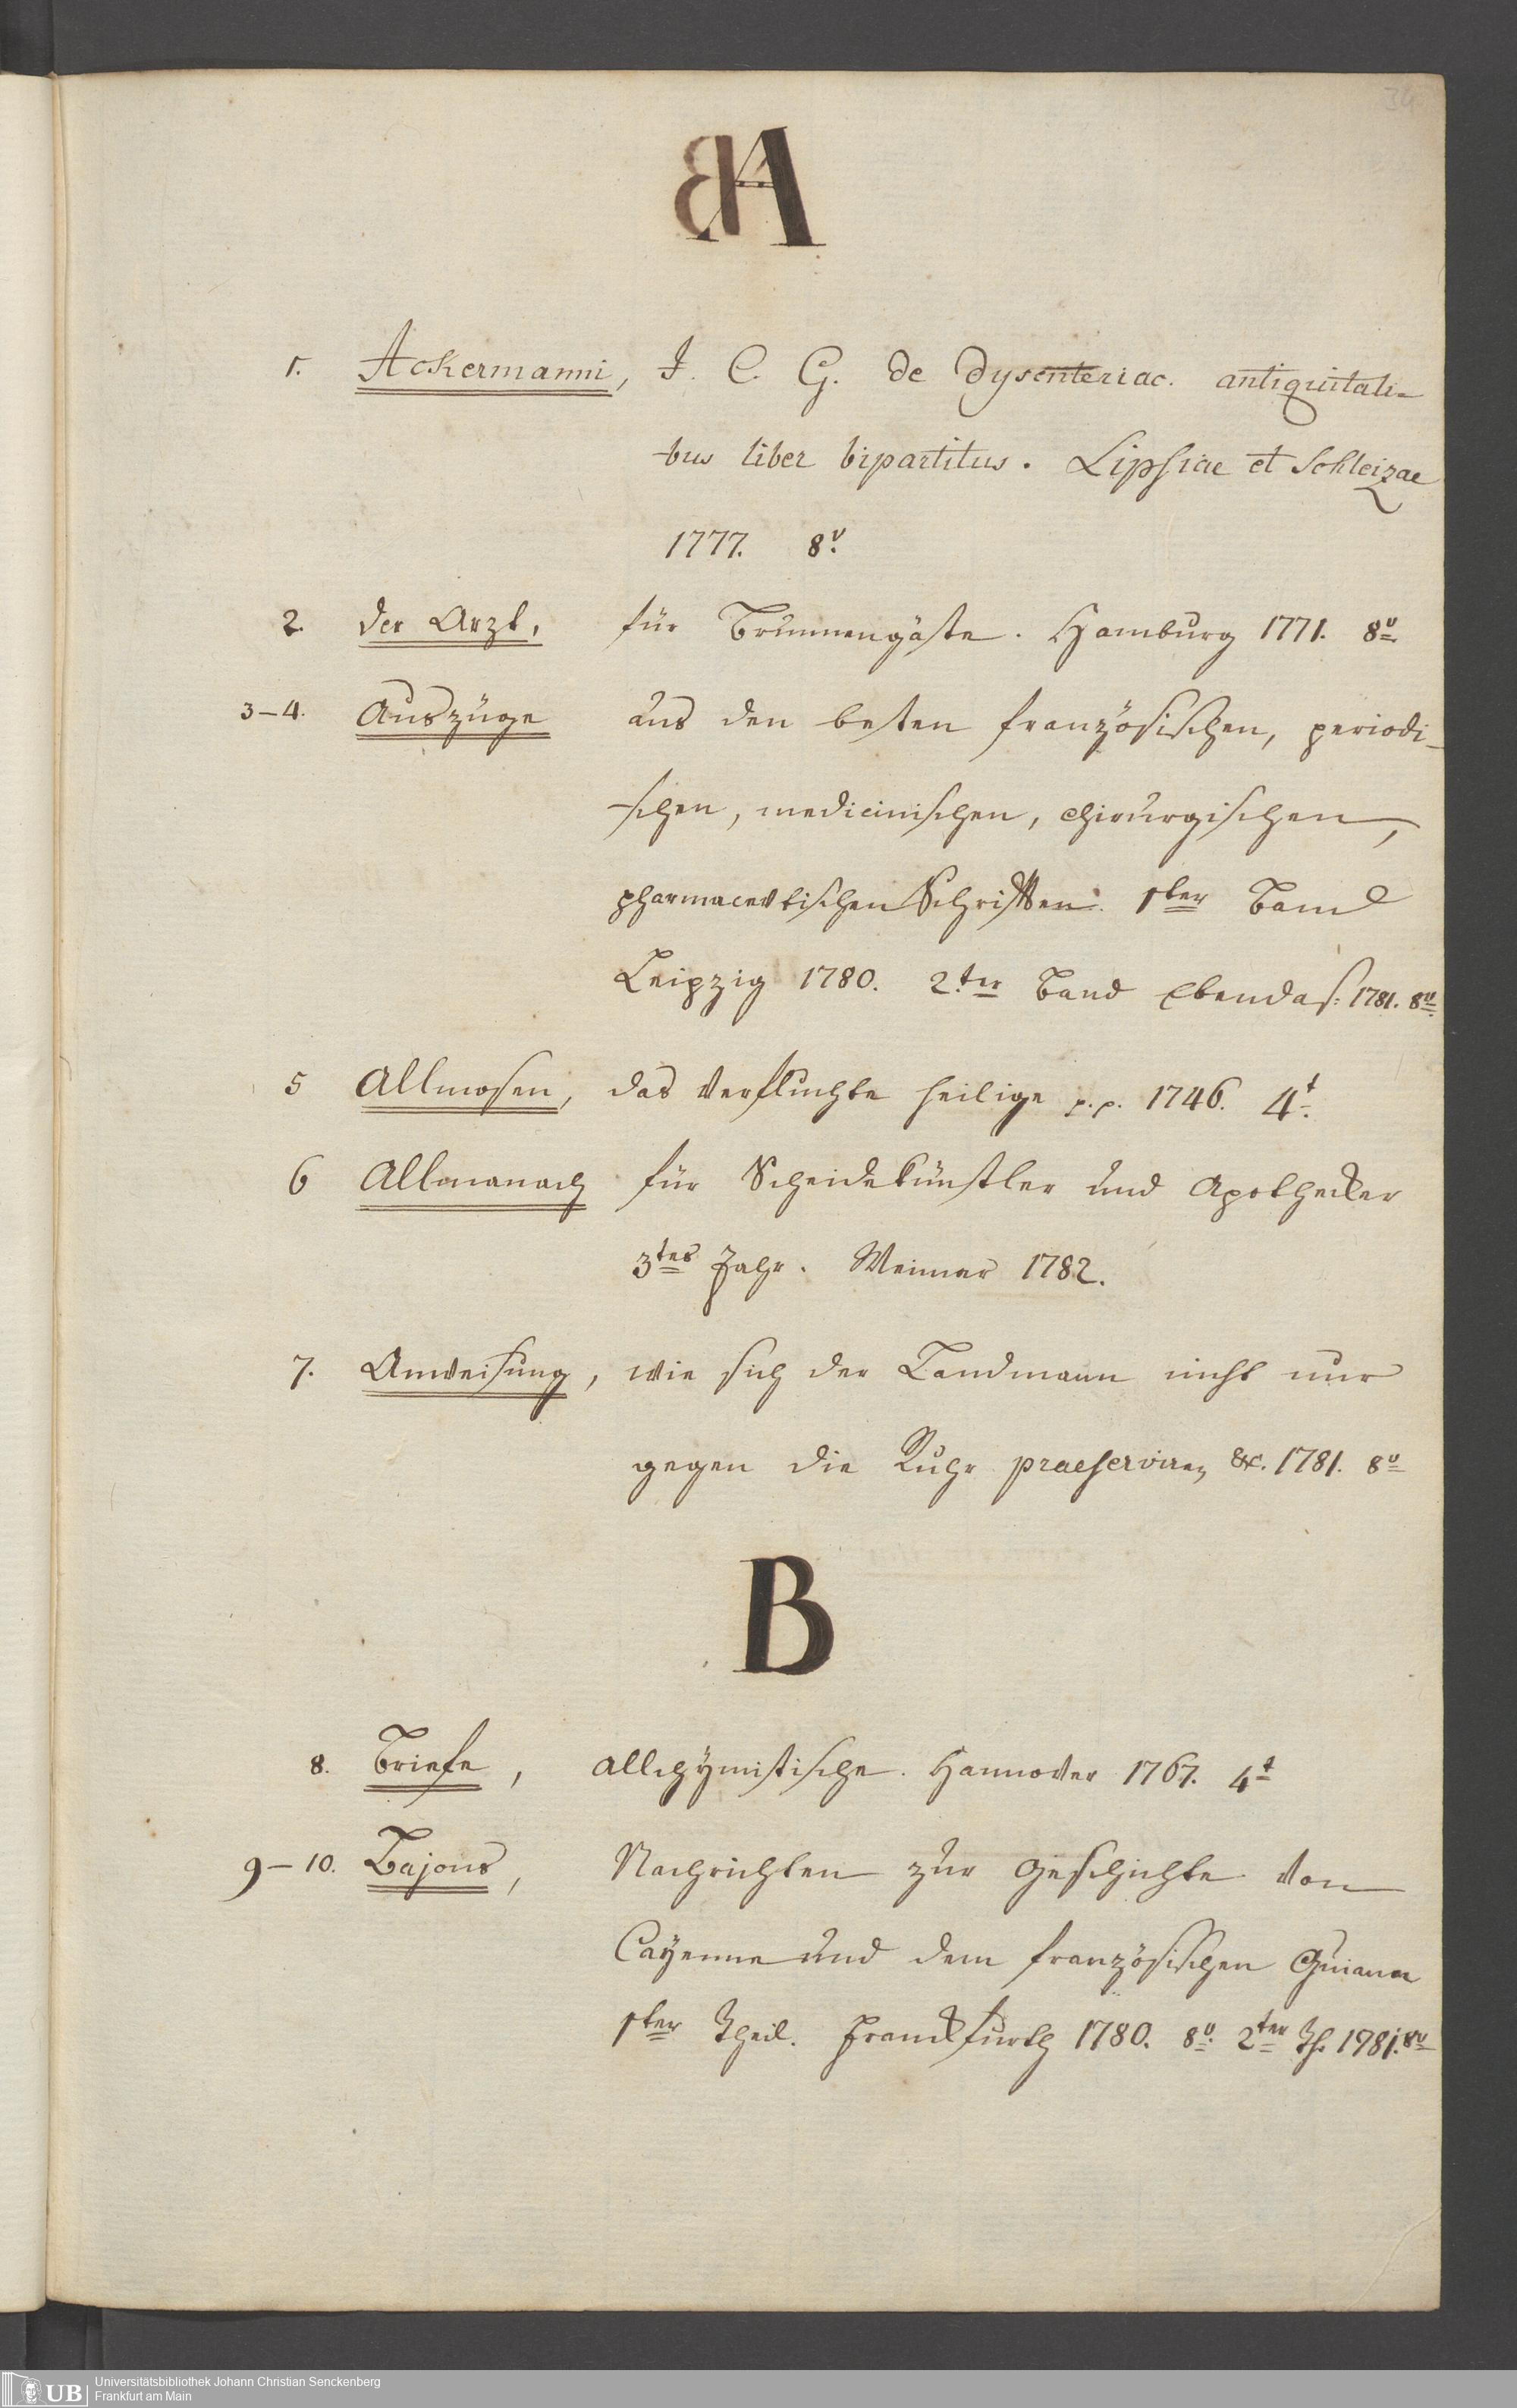 34
A
1. Ackermanni, J. C. G. de dysenteriae. antiquitati-
bus liber bipartitus. Lipsiae et Schleizae
1777. 8v.
2. der Arzt, für Brunnengäste. Hamburg 1771. 8v.
3-4. Auszüge aus den besten französischen, periodi-
schen, medicinischen, chirurgischen,
pharmacevtischen Schriften. 1ter Band
Leipzig 1780. 2ter Band Ebendas: 1781. 8v.
5 Allmosen, das verfluchte heilige p.p. 1746. 4t.
6 Allmanach für Scheidekünstler und Apothecker
3tes Jahr. Weimar 1782.
7. Anweisung, wie sich der Landmann nicht nur
gegen die Ruhr praeserviren &c. 1781. 8v
B
8. Briefe, Allchÿmistische. Hannover 1767. 4t
9-10. Bajons, Nachrichten zur Geschichte von
Caÿenne und dem französischen Guiana
1ter Theil. Franckfurth 1780. 8v. 2ter Th. 1781. 8v
UB
Universitätsbibliothek Johann Christian Senckenberg
Frankfurt am Main